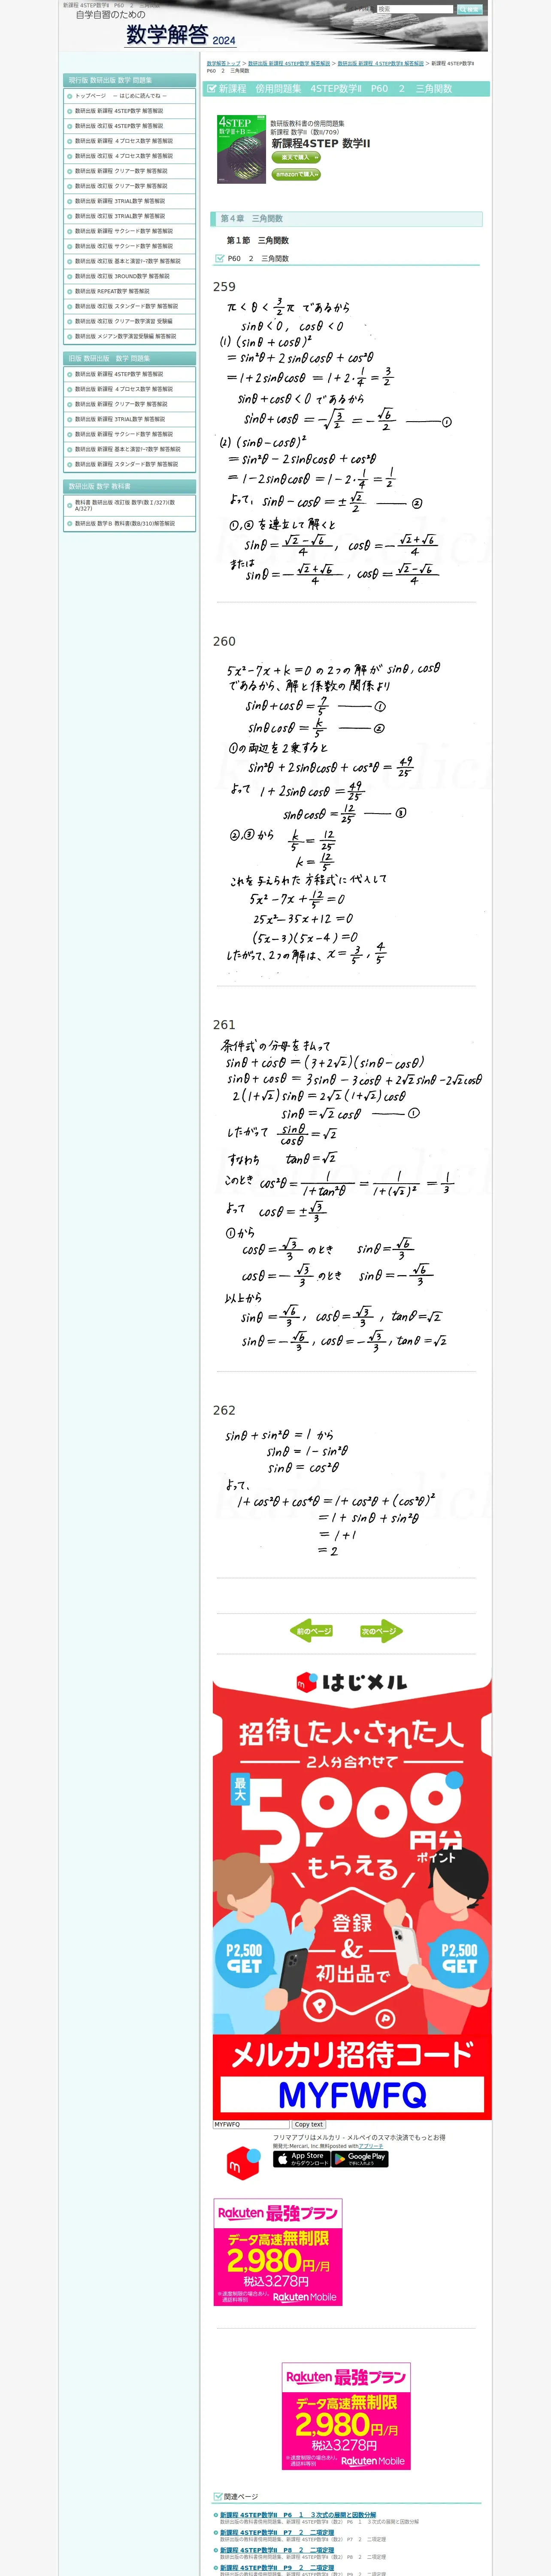 新課程 4STEP数学Ⅱ P60 2 三角関数
自学自習のための
数学解答 2024
検索
数学解答トップ > 数研出版 新課程 4STEP数学 解答解説 > 数研出版 新課程 4STEP数学Ⅱ 解答解説 > 新課程 4STEP数学Ⅱ
P60 2 三角関数
現行版 数研出版 数学 問題集
トップページ － はじめに読んでね －
数研出版 新課程 4STEP数学 解答解説
数研出版 改訂版 4STEP数学 解答解説
数研出版 新課程 4プロセス数学 解答解説
数研出版 改訂版 4プロセス数学 解答解説
数研出版 新課程 クリアー数学 解答解説
数研出版 改訂版 クリアー数学 解答解説
数研出版 新課程 3TRIAL数学 解答解説
数研出版 改訂版 3TRIAL数学 解答解説
数研出版 新課程 サクシード数学 解答解説
数研出版 改訂版 サクシード数学 解答解説
数研出版 改訂版 基本と演習ﾃｰﾏ数学 解答解説
数研出版 改訂版 3ROUND数学 解答解説
数研出版 REPEAT数学 解答解説
数研出版 改訂版 スタンダード数学 解答解説
数研出版 改訂版 クリアー数学演習 受験編
数研出版 メジアン数学演習受験編 解答解説
旧版 数研出版 数学 問題集
数研出版 新課程 4STEP数学 解答解説
数研出版 新課程 4プロセス数学 解答解説
数研出版 新課程 クリアー数学 解答解説
数研出版 新課程 3TRIAL数学 解答解説
数研出版 新課程 サクシード数学 解答解説
数研出版 新課程 基本と演習ﾃｰﾏ数学 解答解説
数研出版 新課程 スタンダード数学 解答解説
数研出版 数学 教科書
教科書 数研出版 改訂版 数学(数Ⅰ/327)(数
A/327)
数研出版 数学Ｂ 教科書(数B/310)解答解説
新課程 傍用問題集 4STEP数学Ⅱ P60 2 三角関数
4STEP
数学Ⅱ+B
数研版教科書の傍用問題集
新課程 数学II（数II/709）
新課程4STEP 数学II
楽天で購入
amazonで購入
第４章 三角関数
第１節 三角関数
P60 2 三角関数
259
π < θ < 3/2 π であるから
sinθ < 0, cosθ < 0
(1) (sinθ + cosθ)²
= sin²θ + 2 sinθ cosθ + cos²θ
= 1 + 2 sinθ cosθ = 1 + 2・1/4 = 3/2
sinθ + cosθ < 0 であるから
sinθ + cosθ = -√(3/2) = -√6/2 ——①
(2) (sinθ - cosθ)²
= sin²θ - 2 sinθ cosθ + cos²θ
= 1 - 2 sinθ cosθ = 1 - 2・1/4 = 1/2
よって, sinθ - cosθ = ± √2/2 ——②
①,②を連立して解くと
sinθ = (√2-√6)/4, cosθ = -(√2+√6)/4
または
sinθ = -(√2+√6)/4, cosθ = (√2-√6)/4
260
5x² - 7x + k = 0 の2つの解が sinθ, cosθ
であるから、解と係数の関係より
sinθ + cosθ = 7/5 ——①
sinθ cosθ = k/5 ——②
①の両辺を2乗すると
sin²θ + 2 sinθ cosθ + cos²θ = 49/25
よって 1 + 2 sinθ cosθ = 49/25
sinθ cosθ = 12/25 ——③
②,③から k/5 = 12/25
k = 12/5
これを与えられた方程式に代入して
5x² - 7x + 12/5 = 0
25x² - 35x + 12 = 0
(5x-3)(5x-4) = 0
したがって、2つの解は、x = 3/5, 4/5
261
条件式の分母を払って
sinθ + cosθ = (3+2√2)(sinθ - cosθ)
sinθ + cosθ = 3 sinθ - 3 cosθ + 2√2 sinθ - 2√2 cosθ
2(1+√2) sinθ = 2√2(1+√2) cosθ
sinθ = √2 cosθ ——①
したがって sinθ/cosθ = √2
すなわち tanθ = √2
このとき cos²θ = 1/(1+tan²θ) = 1/(1+(√2)²) = 1/3
よって cosθ = ± √3/3
①から
cosθ = √3/3 のとき sinθ = √6/3
cosθ = -√3/3 のとき sinθ = -√6/3
以上から
sinθ = √6/3, cosθ = √3/3, tanθ = √2
sinθ = -√6/3, cosθ = -√3/3, tanθ = √2
262
sinθ + sin²θ = 1 から
sinθ = 1 - sin²θ
sinθ = cos²θ
よって、
1 + cos²θ + cos⁴θ = 1 + cos²θ + (cos²θ)²
= 1 + sinθ + sin²θ
= 1 + 1
= 2
前のページ
次のページ
はじメル
招待した人・された人
２人分合わせて
最大
5,000円分
ポイント
もらえる
登録
&
初出品で
P2,500
GET
P2,500
GET
メルカリ招待コード
MYFWFQ
MYFWFQ
Copy text
フリマアプリはメルカリ - メルペイのスマホ決済でもっとお得
開発元:Mercari, Inc.無料posted withアプリーチ
App Store
からダウンロード
Google Play
で手に入れよう
Rakuten 最強プラン
データ高速無制限
2,980円/月
税込3,278円
※速度制限の場合あり。
通話料等別
Rakuten Mobile
Rakuten 最強プラン
データ高速無制限
2,980円/月
税込3278円
※速度制限の場合あり。
通話料等別
Rakuten Mobile
関連ページ
新課程 4STEP数学II P6 1 3次式の展開と因数分解
数研出版の教科書傍用問題集、新課程 4STEP数学II（数2） P6 1 3次式の展開と因数分解
新課程 4STEP数学II P7 2 二項定理
数研出版の教科書傍用問題集、新課程 4STEP数学II（数2） P7 2 二項定理
新課程 4STEP数学II P8 2 二項定理
数研出版の教科書傍用問題集、新課程 4STEP数学II（数2） P8 2 二項定理
新課程 4STEP数学II P9 2 二項定理
数研出版の教科書傍用問題集、新課程 4STEP数学II（数2） P9 2 二項定理